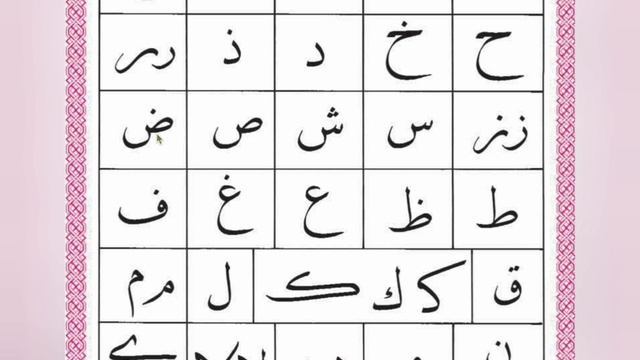 ح خ د ذ ر ر
ز ز س ش ص ض
ط ظ ع غ ف
ق ك ك ك ل م م